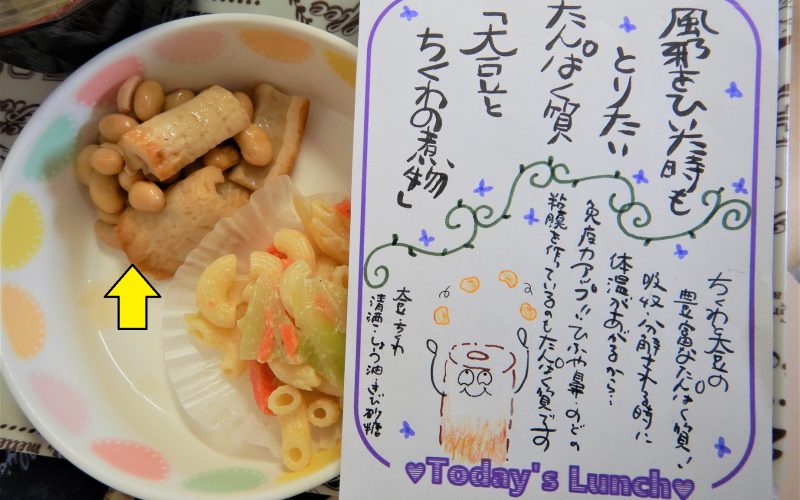 風邪をひいた時も
とりたい
たんぱく質
「大豆と
ちくわの煮物」
ちくわと大豆の
豊富なたんぱく質！
吸収・分解される時に
体温があがるから…
免疫力アップ!!ひふや鼻、のどの
粘膜を作っているのもたんぱく質です
大豆・ちくわ
清酒・しょう油・きび砂糖
♥Today's Lunch♥